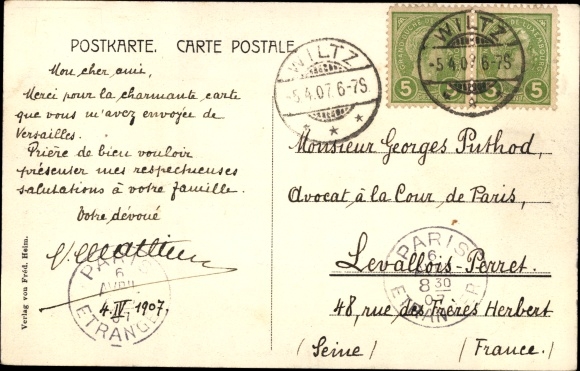 POSTKARTE. CARTE POSTALE
Mon cher ami,
Merci pour la charmante carte
que vous m'avez envoyée de
Versailles.
Prière de bien vouloir
présenter mes respectueuses
salutations à votre famille.
Votre dévoué
4. IV 1907.
Verlag von Fréd. Heim.
WILTZ
-5.4.07. 6-7S
GRAND DUCHÉ DE LUXEMBOURG
5
5
WILTZ
-5.4.07 6-7S
Monsieur Georges Puthod,
Avocat à la Cour de Paris,
Levallois-Perret.
48, rue des Frères Herbert
(Seine) (France.)
PARIS
6
AVRIL
07
ETRANGER
PARIS
6
8 30
07
ETRANGER